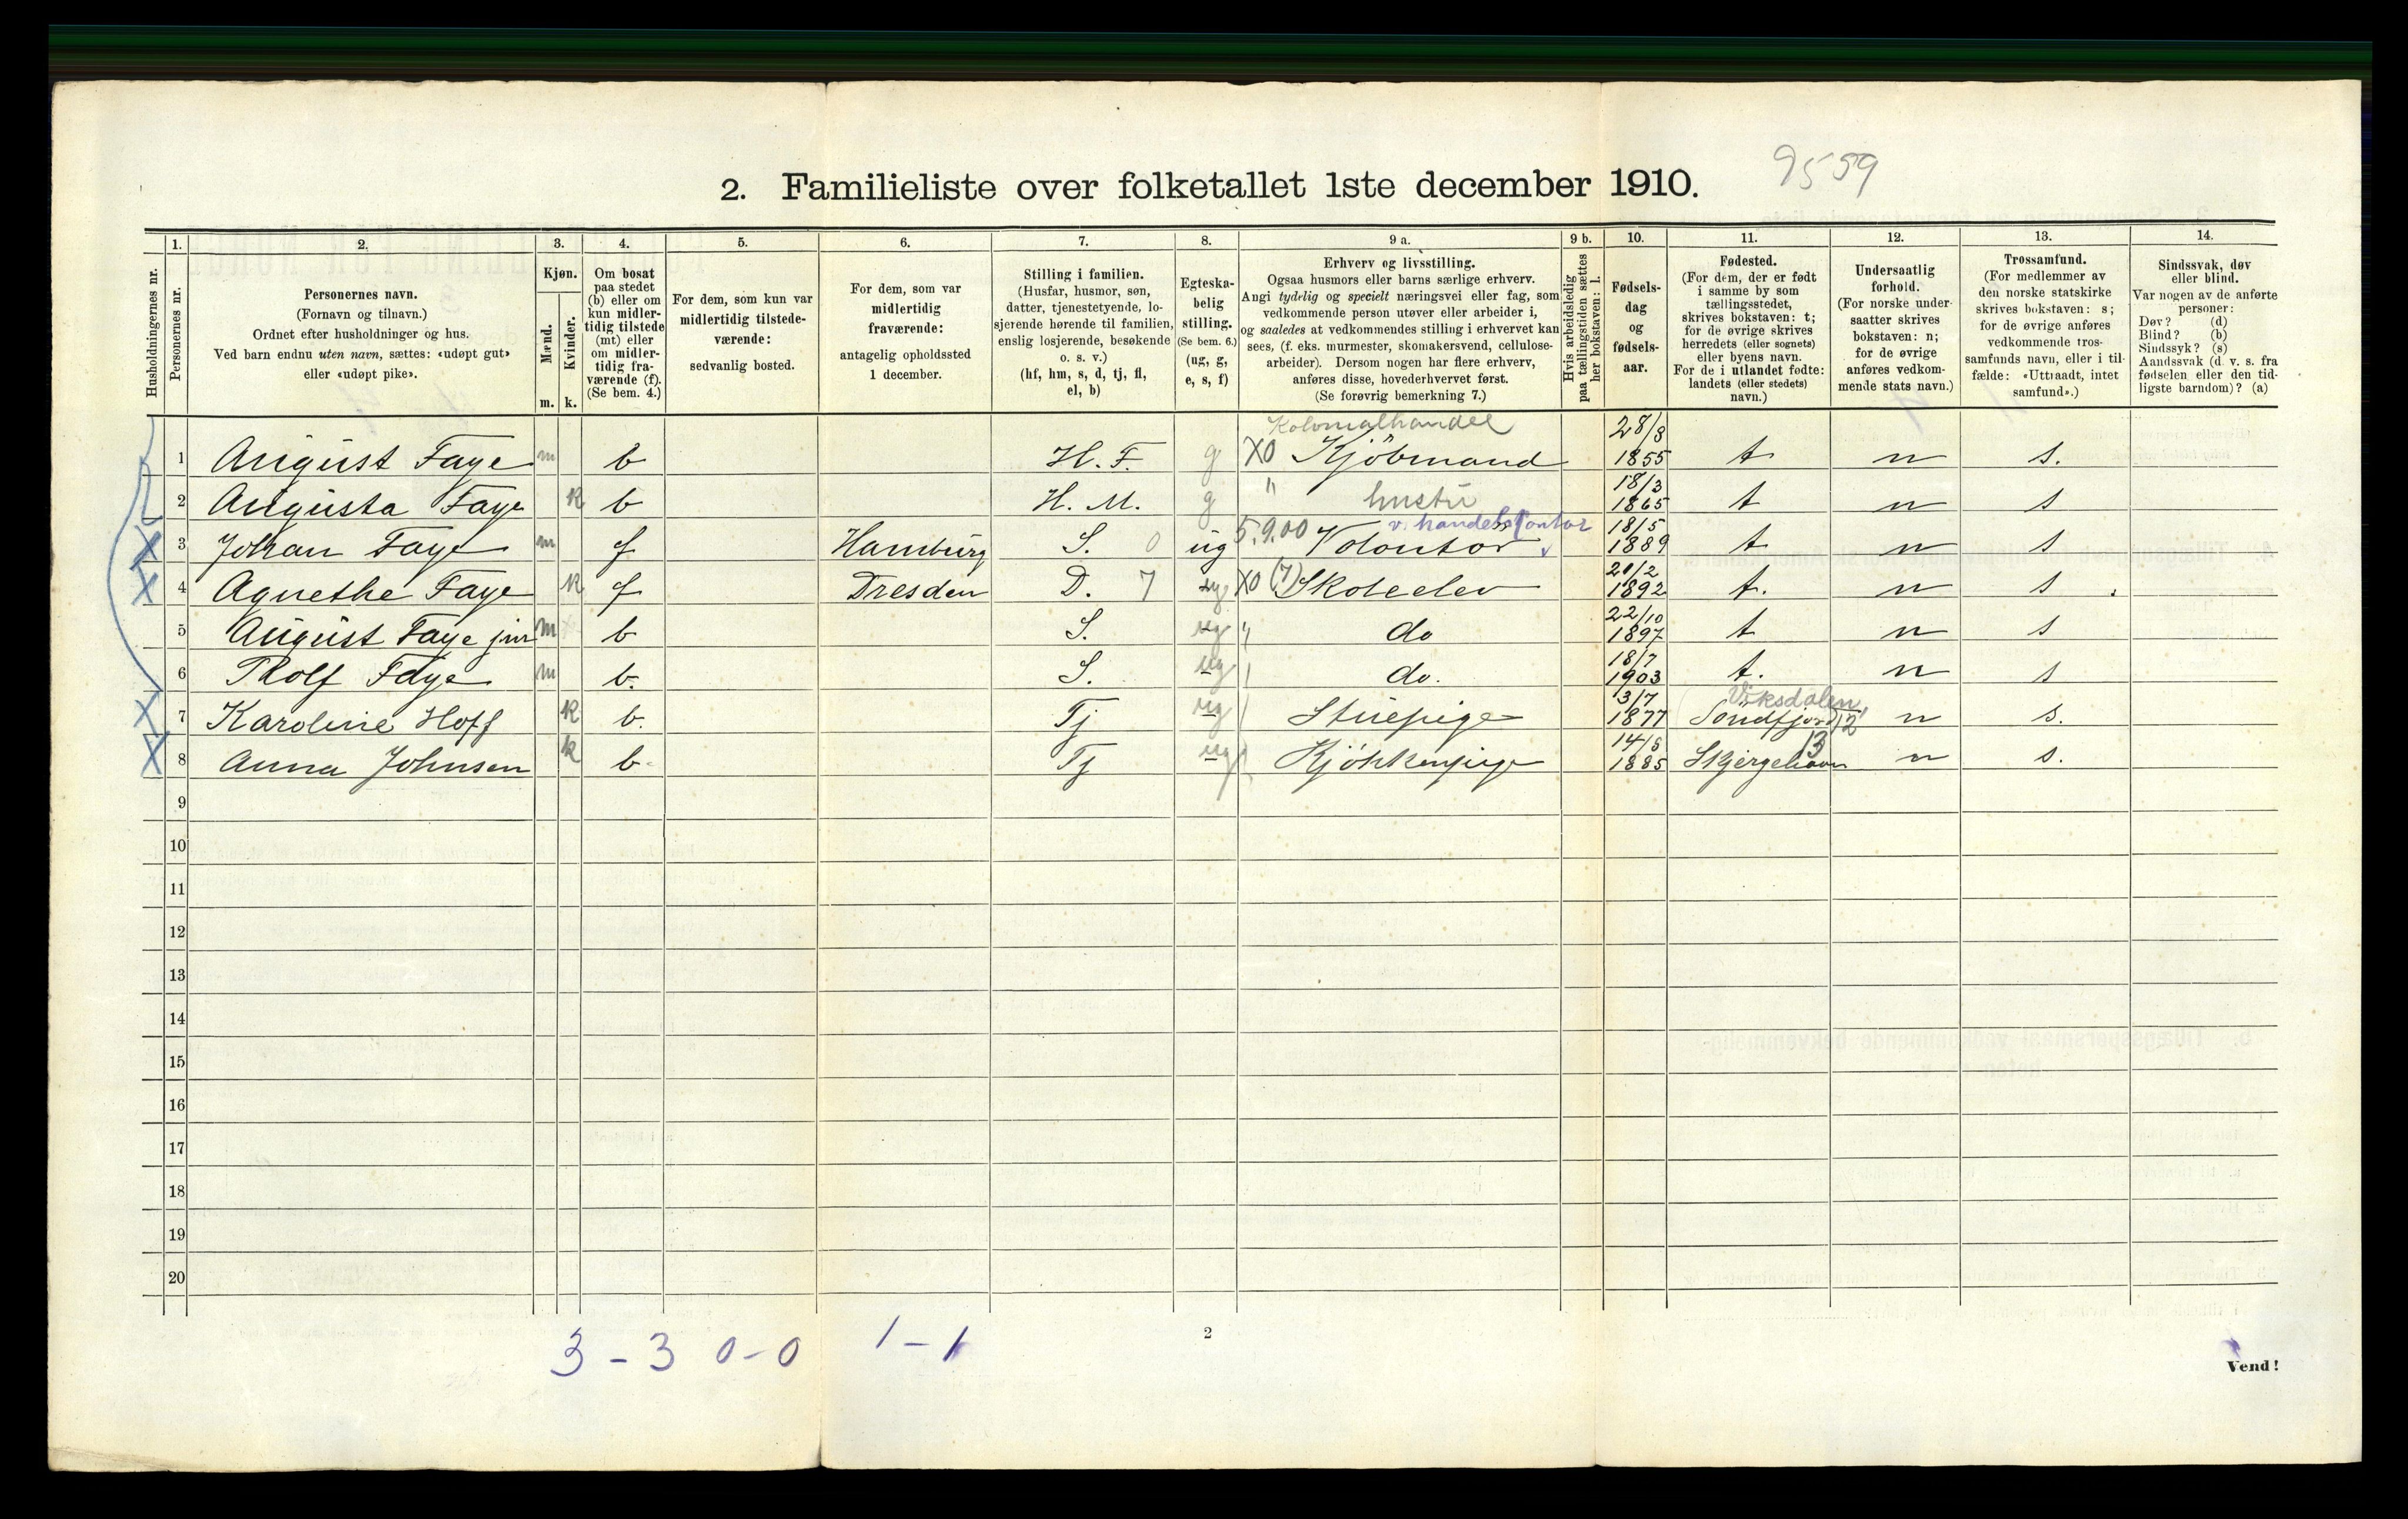 9559
2. Familieliste over folketallet 1ste december 1910.
Husholdningernes nr.
1. Personernes nr.
2. Personernes navn.
(Fornavn og tilnavn.)
Ordnet efter husholdninger og hus.
Ved barn endnu uten navn, sættes: «udøpt gut»
eller «udøpt pike».
3. Kjøn.
Mænd. m.
Kvinder. k.
4. Om bosat
paa stedet
(b) eller om
kun midler-
tidig tilstede
(mt) eller
om midler-
tidig fra-
værende (f).
(Se bem. 4.)
5. For dem, som kun var
midlertidig tilstede-
værende:
sedvanlig bosted.
6. For dem, som var
midlertidig
fraværende:
antagelig opholdssted
1 december.
7. Stilling i familien.
(Husfar, husmor, søn,
datter, tjenestetyende, lo-
sjerende hørende til familien,
enslig losjerende, besøkende
o. s. v.)
(hf, hm, s, d, tj, fl,
el, b)
8. Egteska-
belig
stilling.
(Se bem. 6.)
(ug, g,
e, s, f)
9 a. Erhverv og livsstilling.
Ogsaa husmors eller barns særlige erhverv.
Angi tydelig og specielt næringsvei eller fag, som
vedkommende person utøver eller arbeider i,
og saaledes at vedkommendes stilling i erhvervet kan
sees, (f. eks. murmester, skomakersvend, cellulose-
arbeider). Dersom nogen har flere erhverv,
anføres disse, hovederhvervet først.
(Se forøvrig bemerkning 7.)
9 b. Hvis arbeidsledig
paa tællingstiden sættes
her bokstaven: l.
10. Fødsels-
dag
og
fødsels-
aar.
11. Fødested.
(For dem, der er født
i samme by som
tællingsstedet,
skrives bokstaven: t;
for de øvrige skrives
herredets (eller sognets)
eller byens navn.
For de i utlandet fødte:
landets (eller stedets)
navn.)
12. Undersaatlig
forhold.
(For norske under-
saatter skrives
bokstaven: n;
for de øvrige
anføres vedkom-
mende stats navn.)
13. Trossamfund.
(For medlemmer av
den norske statskirke
skrives bokstaven: s;
for de øvrige anføres
vedkommende tros-
samfunds navn, eller i til-
fælde: «Uttraadt, intet
samfund».)
14. Sindssvak, døv
eller blind.
Var nogen av de anførte
personer:
Døv? (d)
Blind? (b)
Sindssyk? (s)
Aandssvak (d. v. s. fra
fødselen eller den tid-
ligste barndom)? (a)
Kolonialhandel
1 August Faye m b H. F. g X0 Kjöbmand 28/8 1855 t n s.
2 Augusta Faye k b H. M. g " hustru 18/3 1865 t n s
v. handelskontor
3 Johan Faye m f Hamburg S. 0 ug 5.9.00 Volontör 18/5 1889 t n s
4 Agnethe Faye k f Dresden D. 7 ug X0 (7) Skoleelev 21/2 1892 t. n s
5 August Faye jun m b S. ug " do 22/10 1897 t n s
6 Rolf Faye m b. S. ug do. 18/7 1903 t. n s
Viksdalen
7 Karoline Hoff k b. Tj ug Stuepige 3/7 1877 Söndfjord 12 n s.
13
8 Anna Johnsen k b. Tj ug Kjökkenpige 14/5 1885 Skjergehavn n s.
9
10
11
12
13
14
15
16
17
18
19
20
3 - 3 0 - 0 1 - 1
2
Vend!